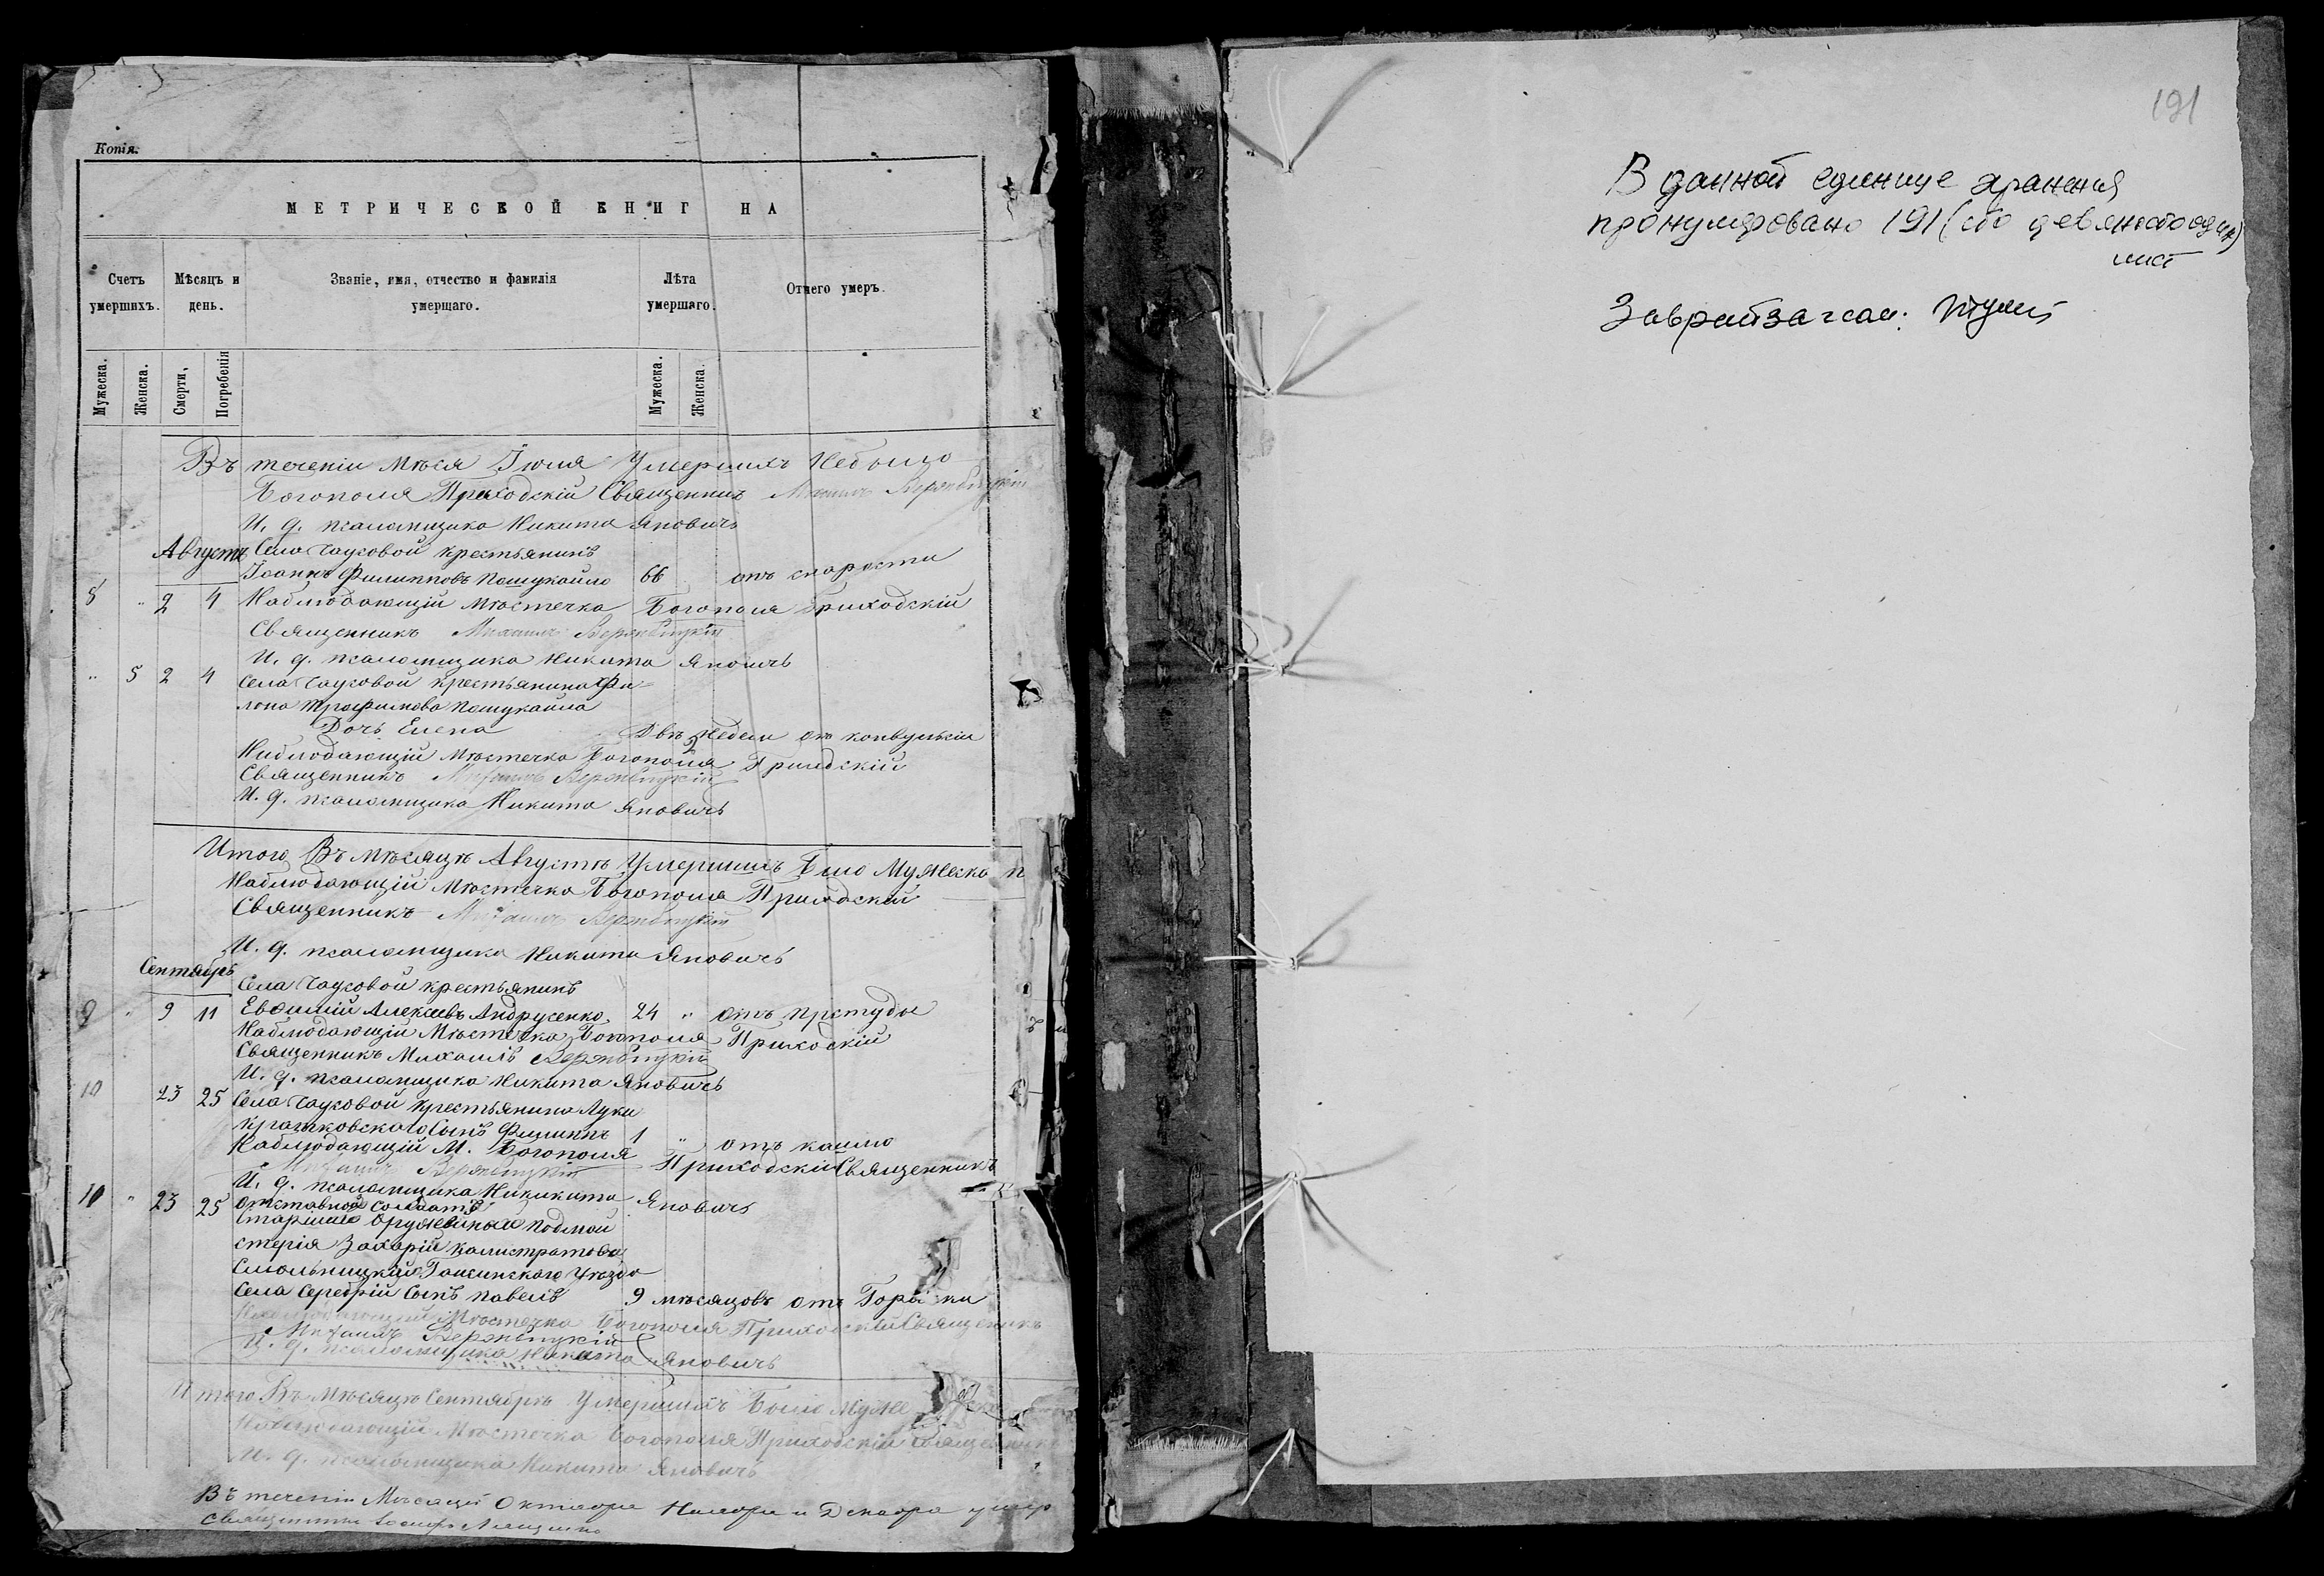 Копія.
МЕТРИЧЕСКОЙ КНИГ НА
Счетъ умершихъ.
Мѣсяцъ и день.
Званіе, имя, отчество и фамилія умершаго.
Лѣта умершаго.
Отчего умеръ.
Мужеска.
Женска.
Смерти,
Погребенія
Мужеска.
Женска.
Въ теченіи Мѣся Іюля Умершихъ Небыло
Богополя Приходскій Священникъ Михаилъ
И. д. псаломщика Никита Яновичъ
Августъ Села Чаусовой крестьянинъ
Іоаннъ Филипповъ Пошукайло 66 отъ старости
8 " 2 4 Наблюдающій Мѣстечка Богополя Приходскій
Священникъ Михаилъ
И. д. псаломщика Никита Яновичъ
" 5 2 4 Села Чаусовой крестьянина Фи-
лона Трофимова Пошукайла
Дочь Елена Двѣ недели от конвульсіи
Наблюдающій Мѣстечка Богополя
Священникъ Михаилъ
И. д. псаломщика Никита Яновичъ
Итого Въ Мѣсяцѣ Августѣ Умершихъ Было Мужеска п
Наблюдающій Мѣстечка Богополя
Священникъ Михаилъ
И. д. псаломщика Никита Яновичъ
Сентябрь
Села Чаусовой крестьянинъ
9 " 9 11 Евфимій Алексеевъ Андрусенко 24 " отъ
Наблюдающій Мѣстечка Богополя
Священникъ Михаилъ
И. д. псаломщика Никита Яновичъ
10 23 25 Села Чаусовой крестьянина Луки
Сынъ Филиппъ 1 " отъ кашлю
Наблюдающій М. Богополя Приходскій Священникъ
Михаилъ
И. д. псаломщика Яновичъ
" 23 25 Отставной солдатъ
Старшій подмай
стерія Захарій Калистратова
уѣзда
Села Сынъ Павелъ 9 мѣсяцовъ отъ
Мѣстечка Богополя Приходскій Священникъ
Михаилъ
И. д. псаломщика Никита Яновичъ
Итого Въ Мѣсяцѣ Сентябрѣ Умершихъ Было Муже
Наблюдающій Мѣстечка Богополя Приходскій Священник
И. д. псаломщика Никита Яновичъ
Въ теченіи Октября Ноября и Декабря умер
191
В данной единице хранения
пронумеровано 191 (сто девяносто один)
лист
Заврайзагсом: